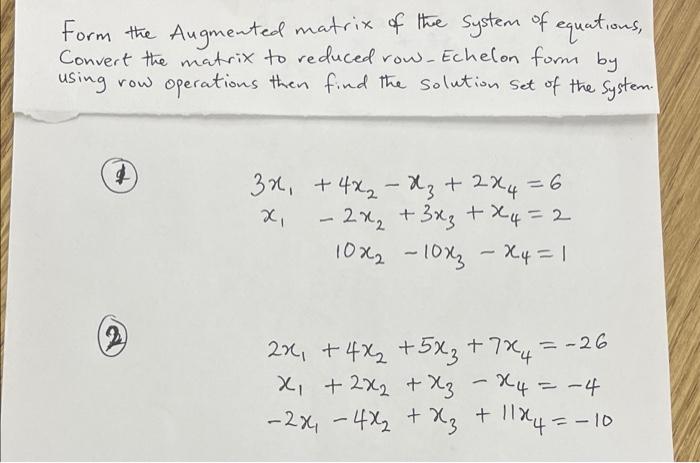 Form the Augmented matrix of the system of equations,
Convert the matrix to reduced row-Echelon form by
using row operations then find the solution set of the system.
①
3x₁ + 4x₂ - x₃ + 2x₄ = 6
x₁ - 2x₂ + 3x₃ + x₄ = 2
10x₂ - 10x₃ - x₄ = 1
②
2x₁ + 4x₂ + 5x₃ + 7x₄ = -26
x₁ + 2x₂ + x₃ - x₄ = -4
-2x₁ - 4x₂ + x₃ + 11x₄ = -10